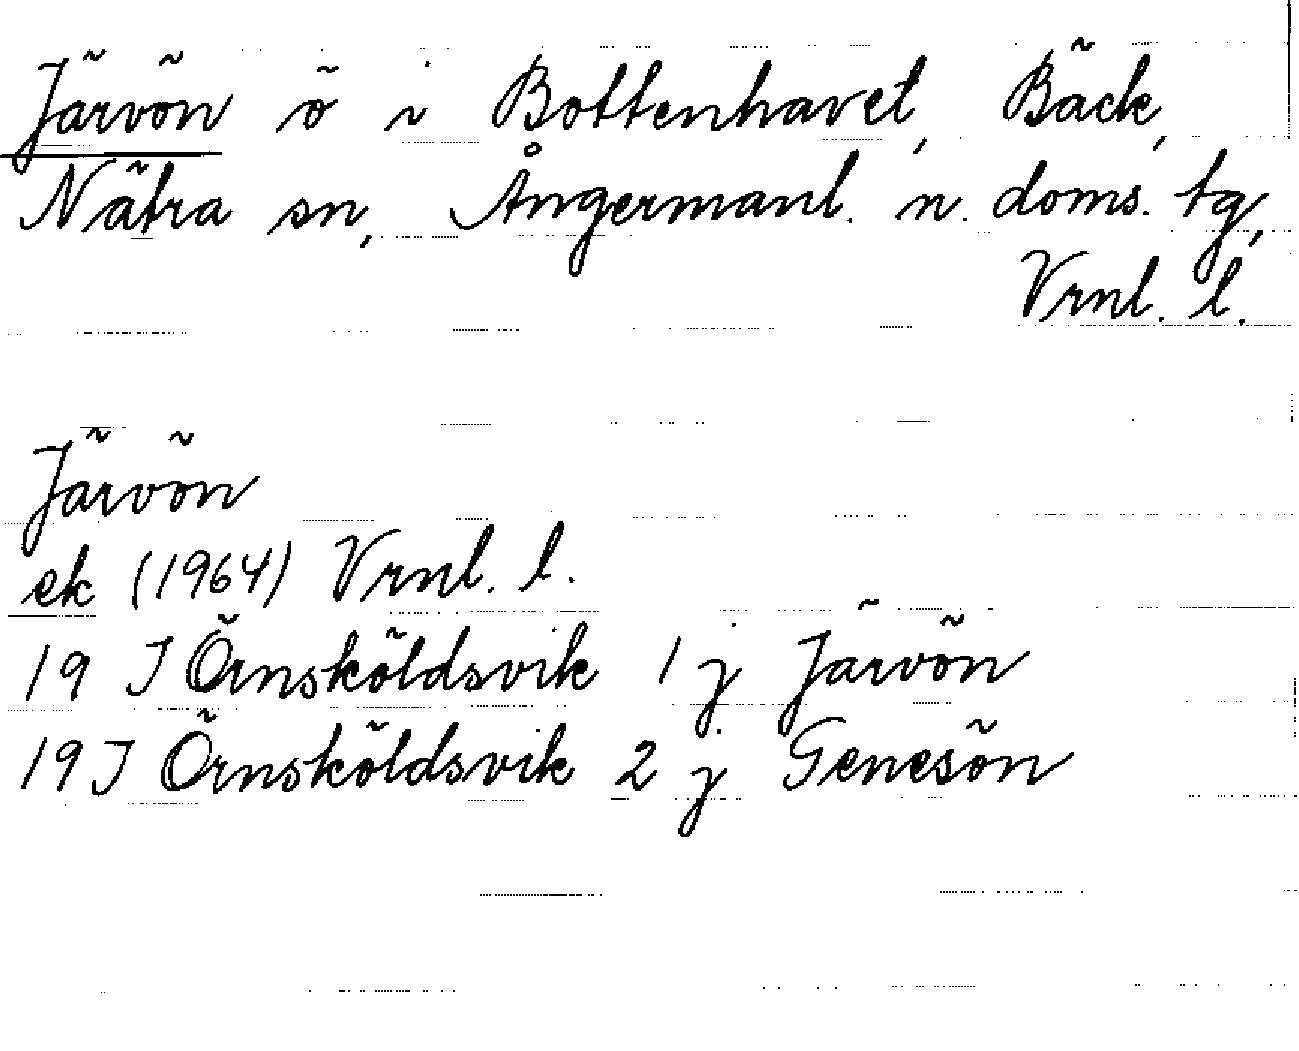 Järvön ö i Bottenhavet, Bäck,
Nätra sn, Ångermanl. n. doms. tg,
Vrnl. l.
Järvön
ek (1964) Vrnl. l.
19 J Örnsköldsvik 1 j Järvön
19 J Örnsköldsvik 2 j Genesön